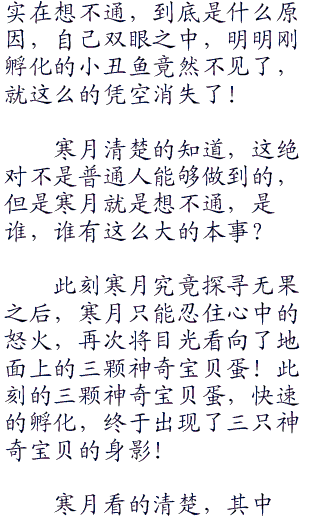 实在想不通，到底是什么原
因，自己双眼之中，明明刚
孵化的小丑鱼竟然不见了，
就这么的凭空消失了！
寒月清楚的知道，这绝
对不是普通人能够做到的，
但是寒月就是想不通，是
谁，谁有这么大的本事？
此刻寒月究竟探寻无果
之后，寒月只能忍住心中的
怒火，再次将目光看向了地
面上的三颗神奇宝贝蛋！此
刻的三颗神奇宝贝蛋，快速
的孵化，终于出现了三只神
奇宝贝的身影！
寒月看的清楚，其中